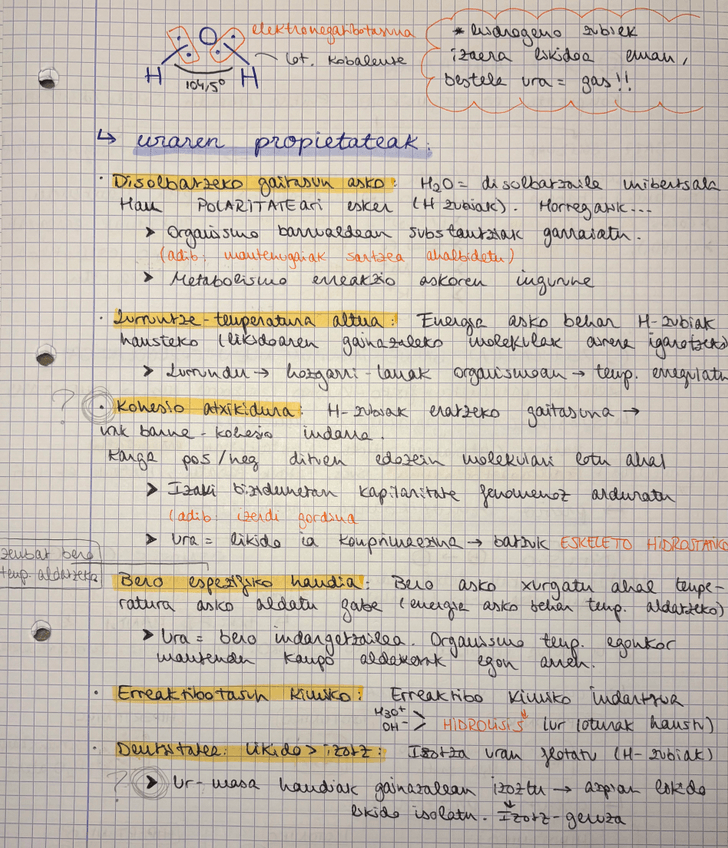 elektronegatibotasuna
O
H H
104,5°
lot. kobalente
* hidrogeno zubiek
izaera likidoa eman,
bestela ura = gas!!
↳ uraren propietateak:
· Disolbatzeko gaitasun asko: H₂O = disolbatzaile unibertsala
Hau POLARITATEari esker (H zubiak). Horregatik...
➤ Organismo barrualdean substantziak garraiatu.
(adib: mantenugaiak sartzea ahalbidetu)
➤ Metabolismo erreakzio askoren ingurune
· Lurruntze-tenperatura altua: Energia asko behar H-zubiak
hausteko (likidoaren gainazaleko molekulak airera igarotzeko
➤ Lurrundu → hozgarri-lanak organismoan → tenp. erregulatu
? · Kohesio atxikidura: H-zubiak eratzeko gaitasuna →
urak barne-kohesio indarra.
Karga pos/neg dituen edozein molekulari lotu ahal
➤ Izaki bizidunetan kapilaritate fenomenoz arduratu
(adib: izerdi gordina
➤ Ura = likido ia konprimaezina → batzuk ESKELETO HIDROSTATIKO
zenbat bero
tenp. aldatzeko
Bero espezifiko handia: Bero asko xurgatu ahal tenpe-
ratura asko aldatu gabe (energia asko behar tenp. aldatzeko)
➤ Ura = bero indargetzailea. Organismo tenp. egonkor
mantendu kanpo aldaketak egon arren.
· Erreaktibotasun kimiko: Erreaktibo kimiko indartsua
H₃O⁺
OH⁻ > HIDROLISIS (ur loturak hautsi)
· Dentsitatea: likido > izotz: Izotza uran flotatu (H-zubiak)
? ➤ Ur-masa handiak gainazalean izoztu → azpian likido
likido isolatu. Izotz-geruza